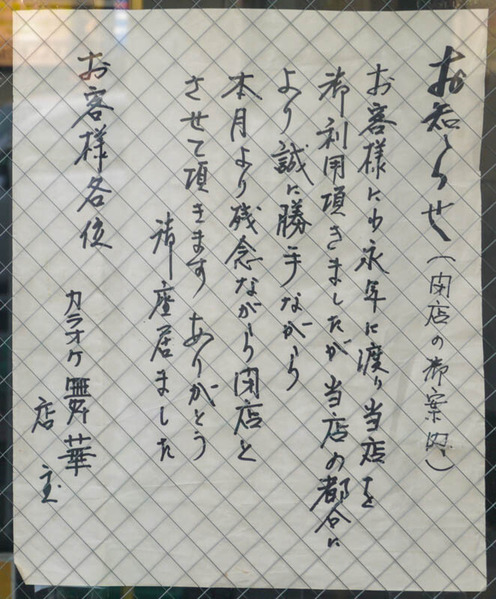 お知らせ（閉店の御案内）
お客様にも永年に渡り当店を
御利用頂きましたが当店の都合に
より誠に勝手ながら
本月より残念ながら閉店と
させて頂きます ありがとう
御座居ました
お客様各位
カラオケ舞華
店主